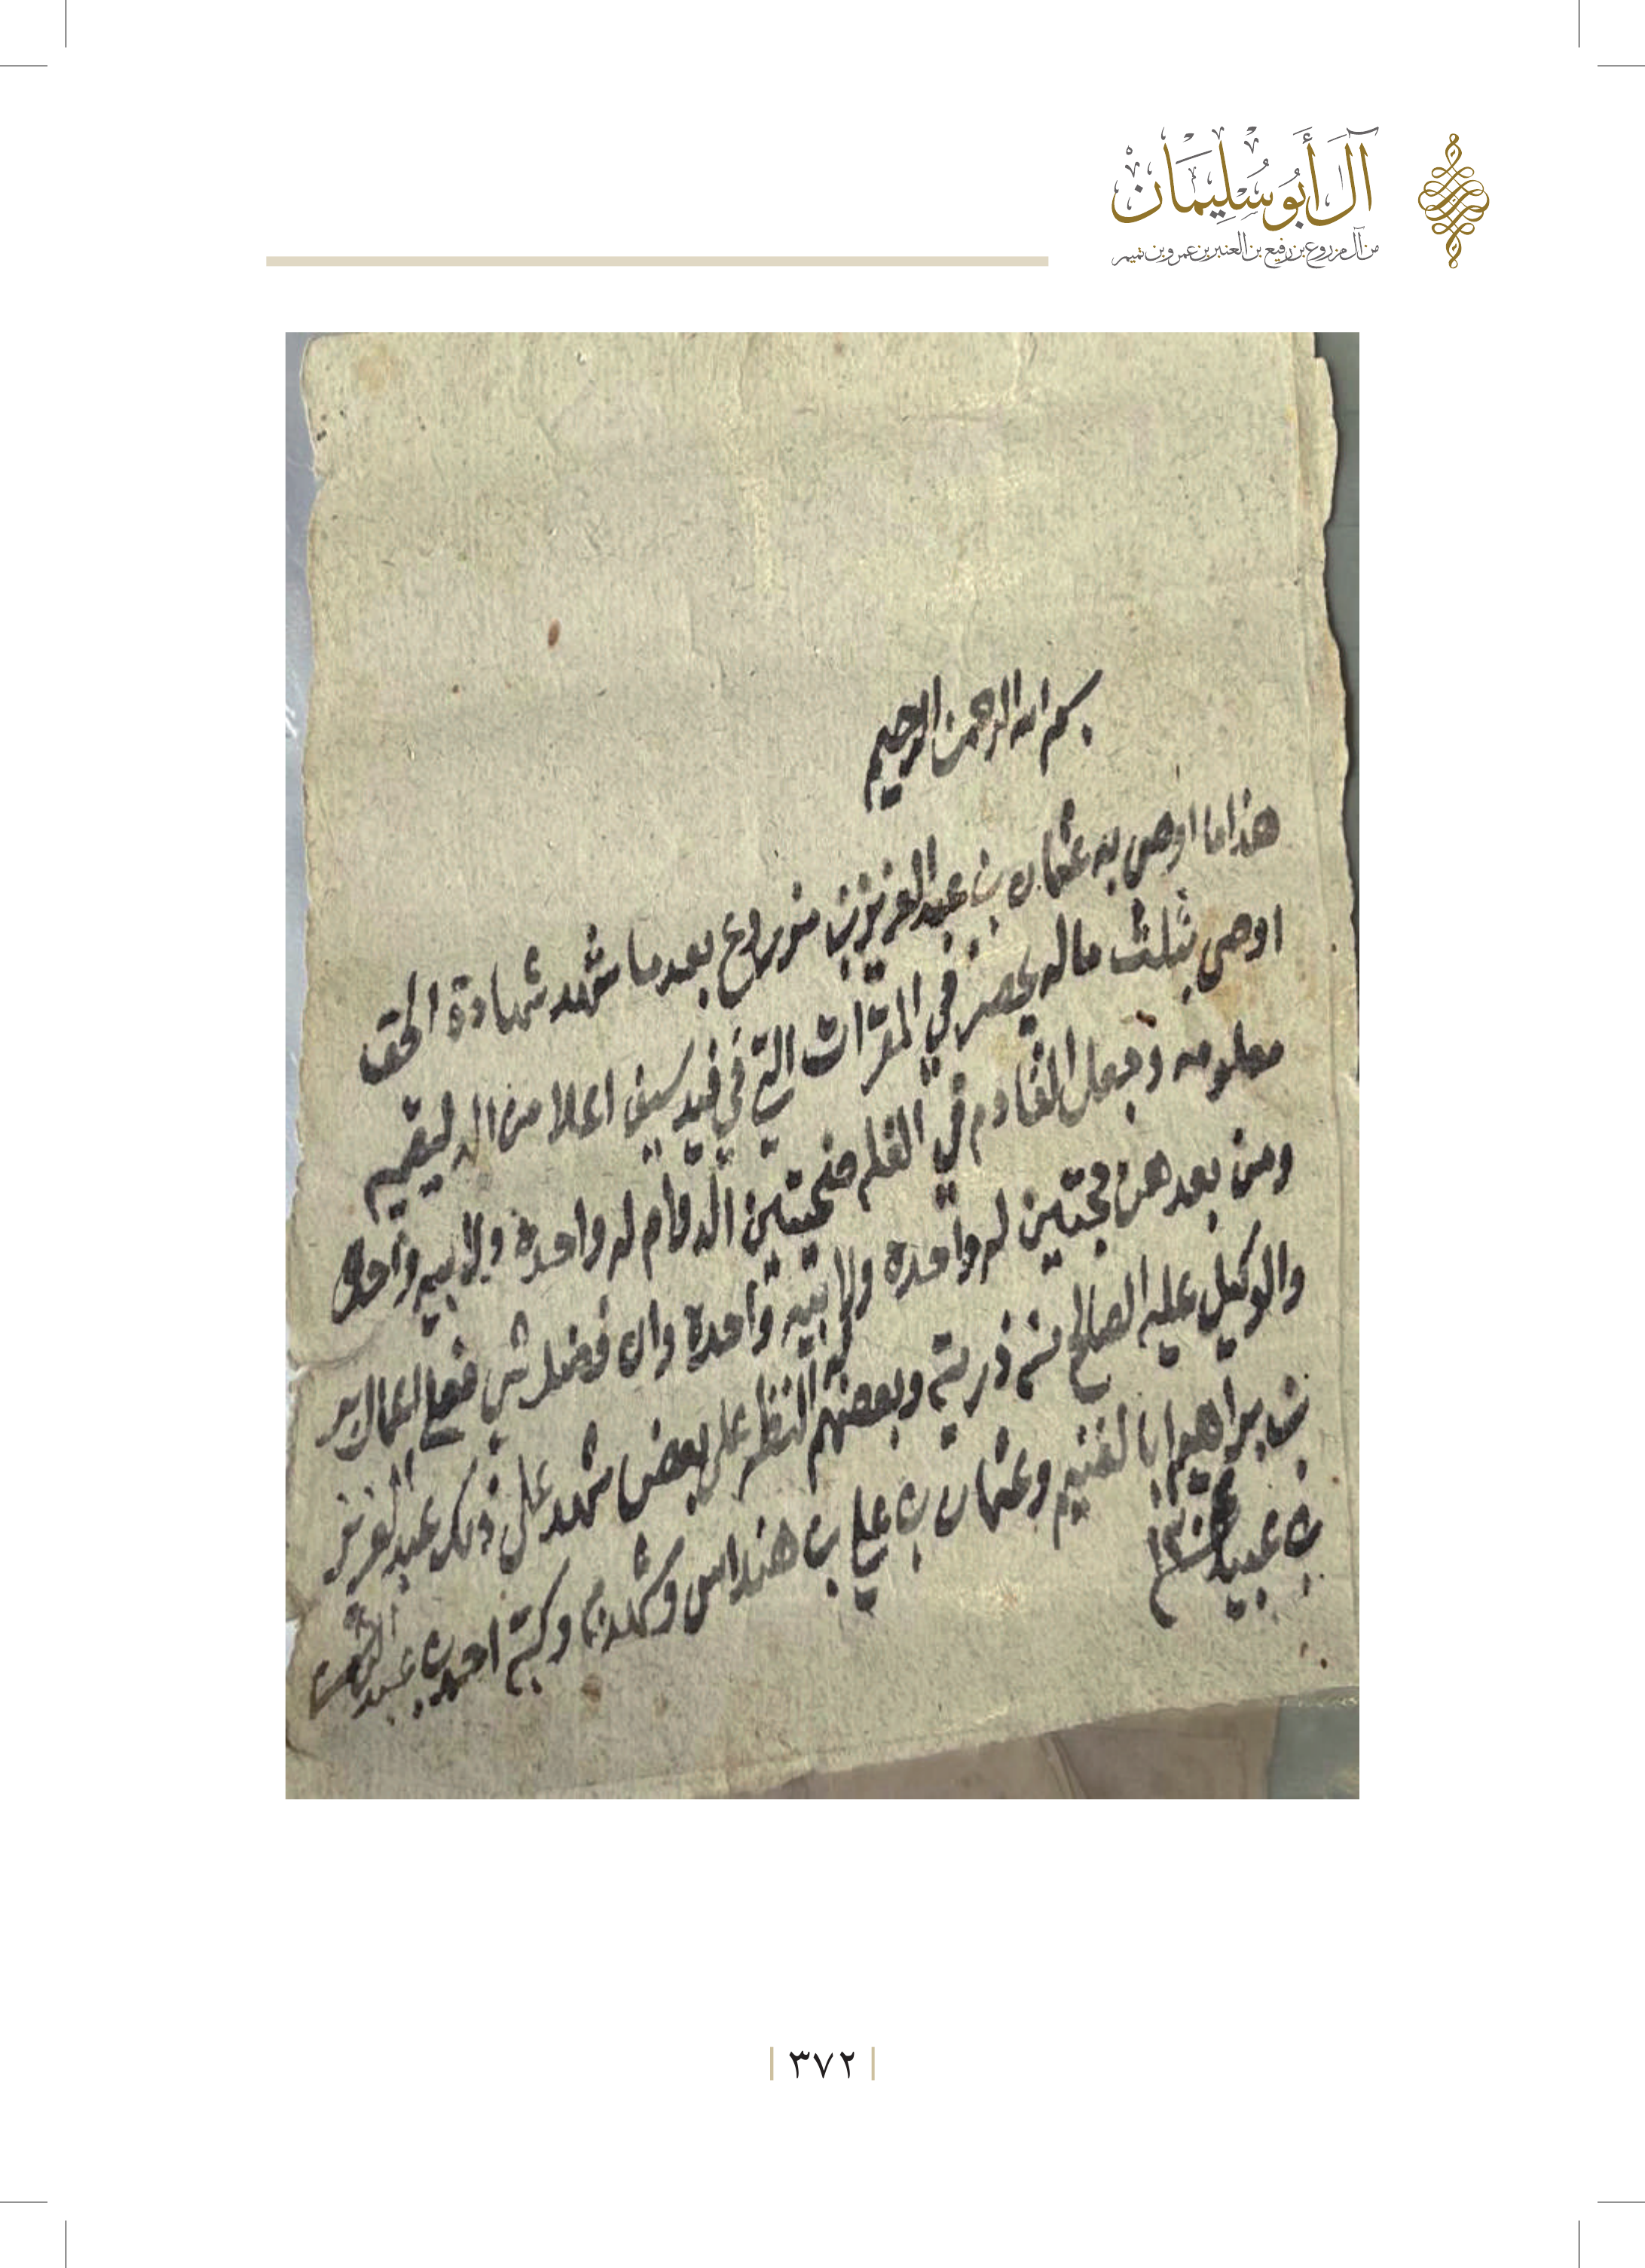 آل أبو سليمان
من آل مزروع بن رفيع بن العنبر بن عمرو بن تميم
بسم الله الرحمن الرحيم
هذا ما اوصى به عثمان بن عبد العزيز بن مزروع بعد ما شهد شهادة الحق
اوصى بثلث ماله يحصر في التي في فيد سيف اعلا من
معلومه وجعل القادم في الغله ضحيتين الدوام له واحدة ولابيه واحدة
ومن بعدهن حجتين له واحدة ولابيه واحدة وان فضل شي ففي اعمال بر
والوكيل عليه الصالح من ذريته وبعضهم له النظر على بعض شهد على ذلك عبد العزيز
بن براهيم ابا لغنيم وعثمان بن علي بن هنداس وشهد به وكتبه احمد بن عبد الرحمن
بن عبيد ١٣٠
٣٧٢